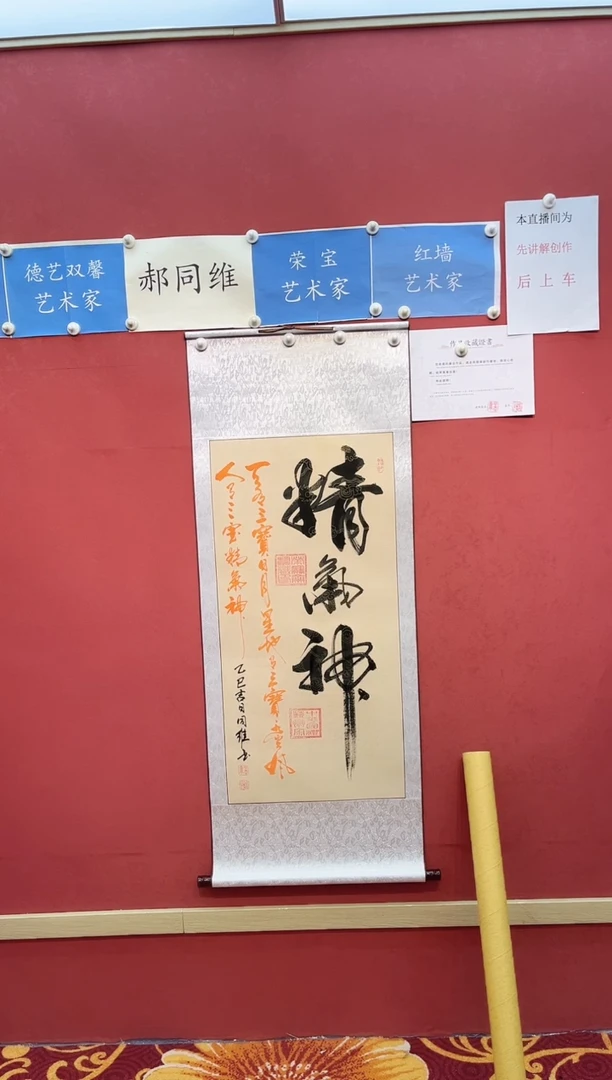 德艺双馨
艺术家
郝同维
荣宝
艺术家
红墙
艺术家
本直播间为
先讲解创作
后上车
作品收藏证书
精氣神
天有三寶日月星地有三寶水火風
人有三寳精氣神
乙巳吉日同維书